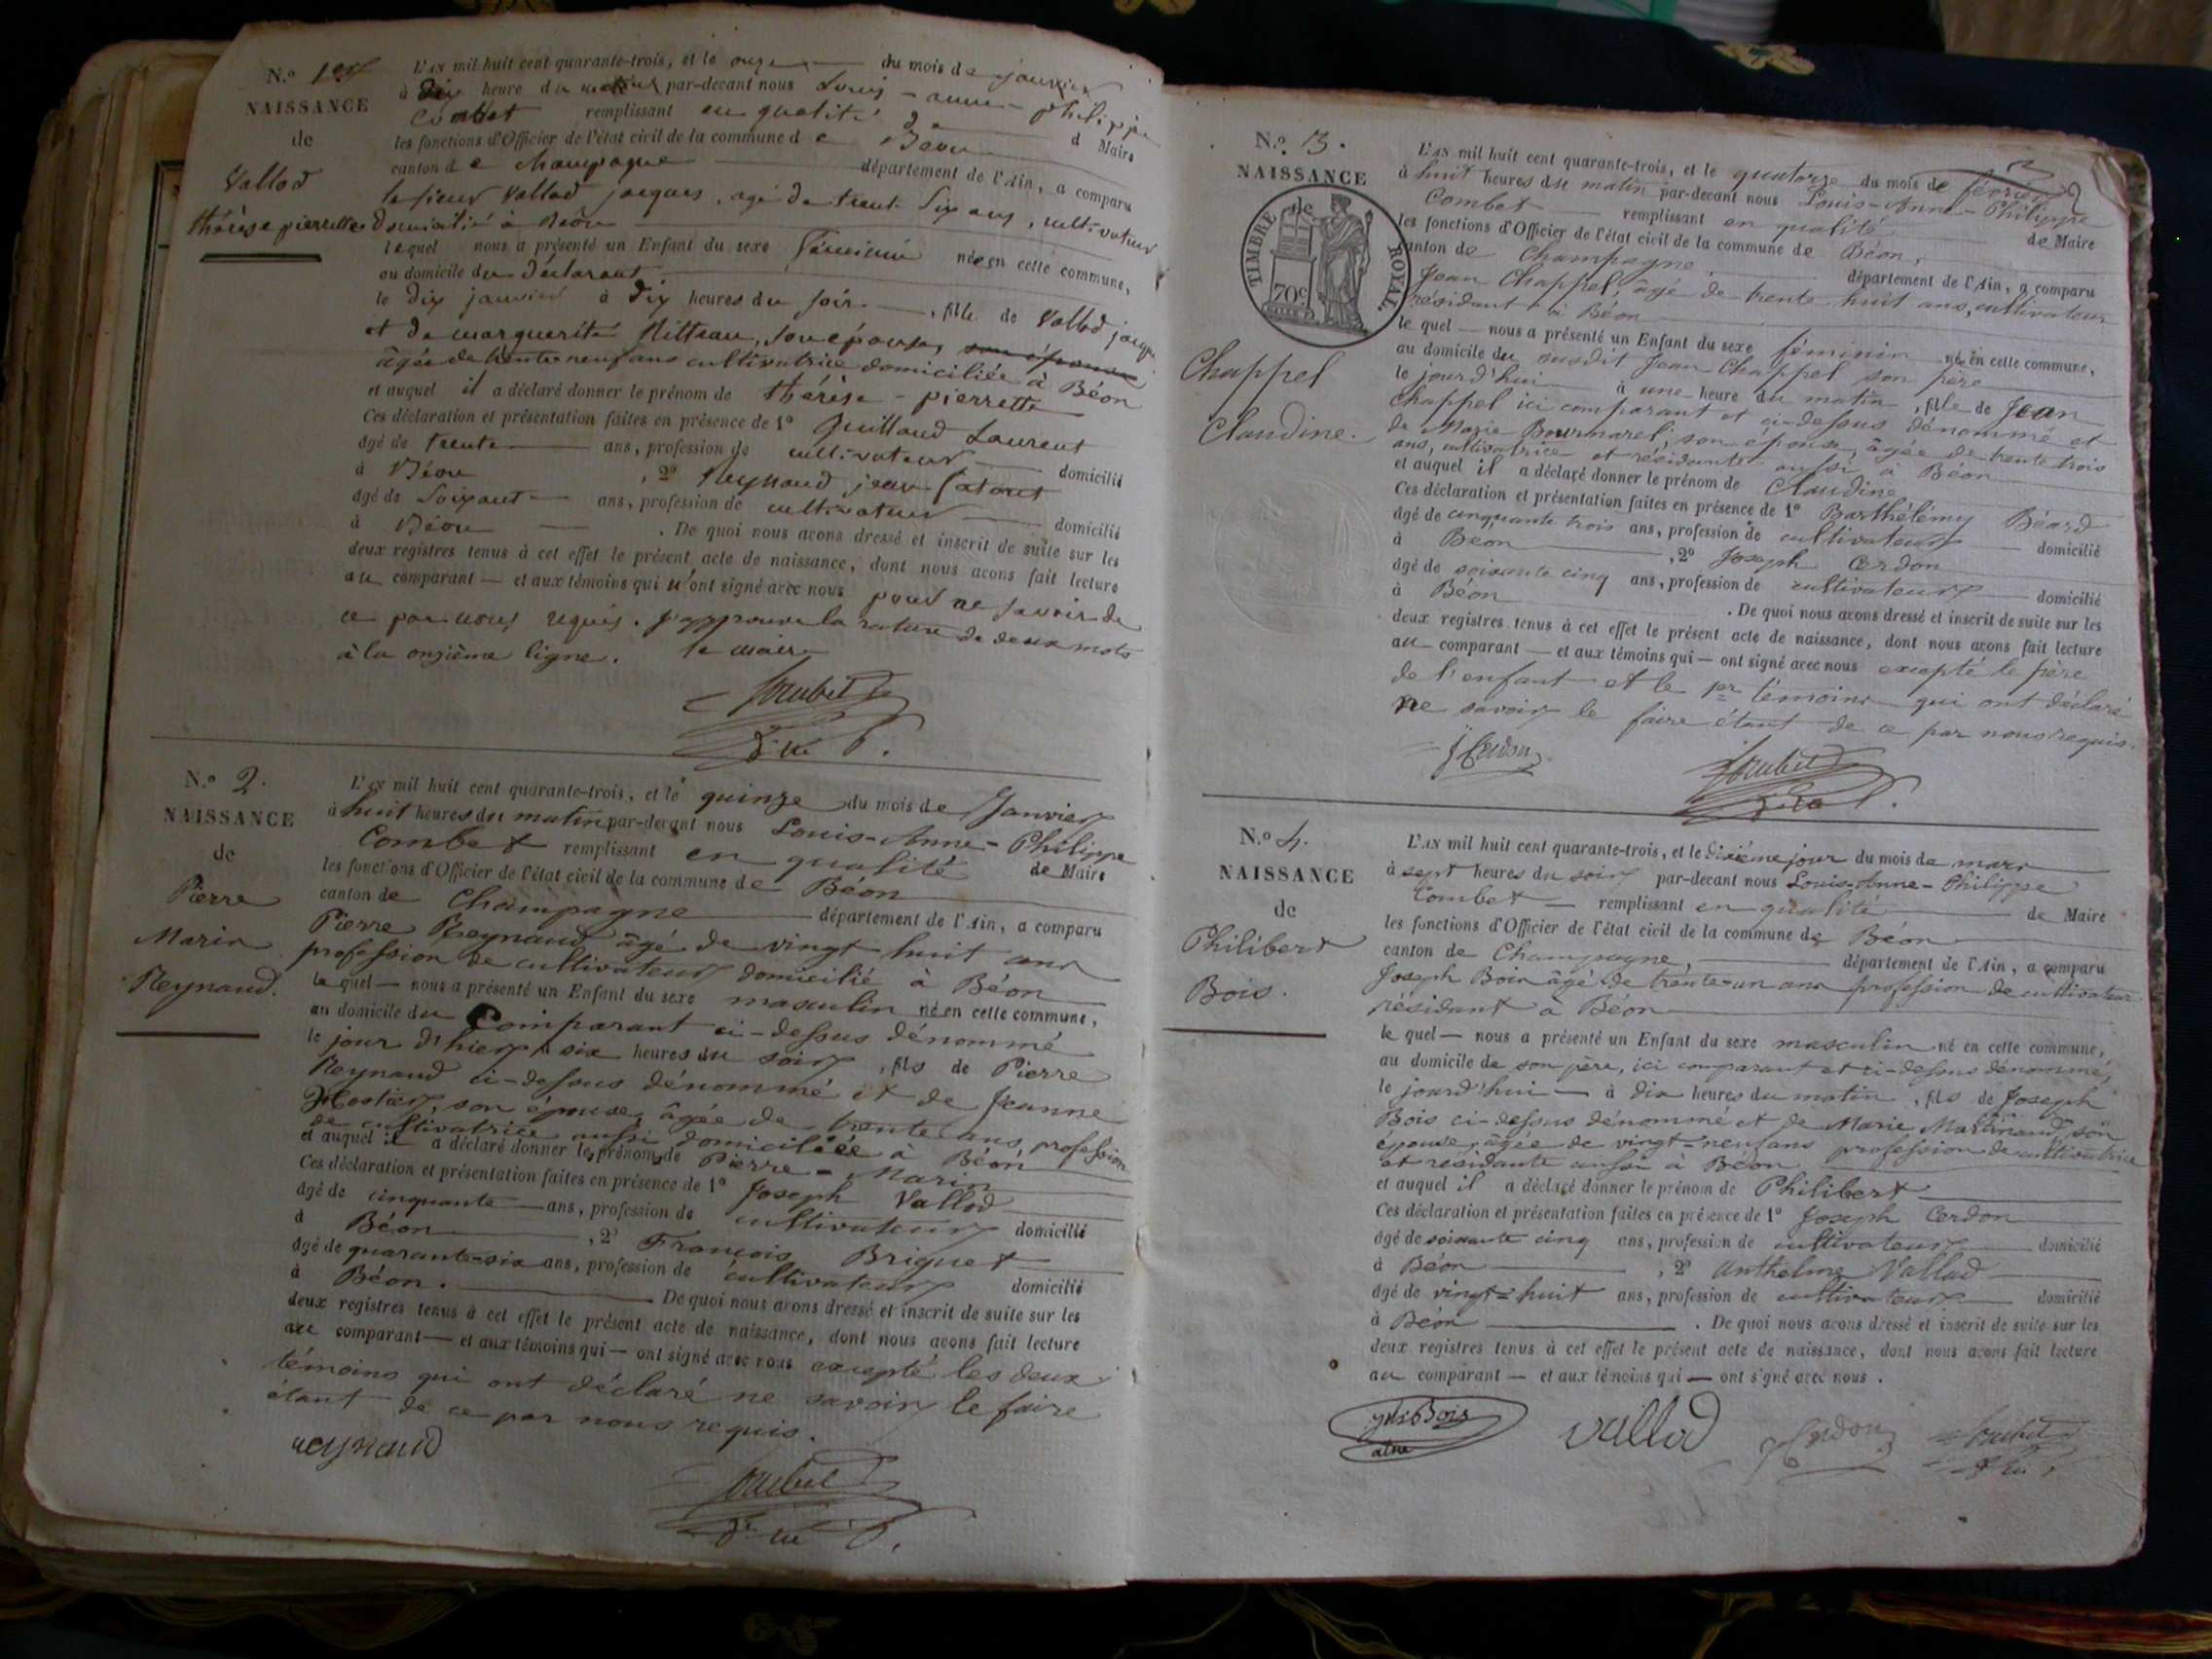 N.º 1er
NAISSANCE
de
Vallod
thérèse pierrette
L'AN mil huit cent quarante-trois, et le onze du mois de janvier
à dix heure du matin par-devant nous Louis-anne-philippe
Combet remplissant en qualité de Maire
les fonctions d'Officier de l'état civil de la commune de Béon
canton de champagne département de l'Ain, a comparu
le sieur Vallod jacques, agé de trente six ans, cultivateur
domicilié à Béon
lequel nous a présenté un Enfant du sexe féminin née en cette commune,
au domicile du déclarant
le dix janvier à dix heures du soir, fille de Vallod jacques
et de marguerite son épouse, son épouse
âgée de trente neuf ans cultivatrice domiciliée à Béon
et auquel il a déclaré donner le prénom de thérèse-pierrette
Ces déclaration et présentation faites en présence de 1º Guillaud Laurent
âgé de trente ans, profession de cultivateur domicilié
à Béon, 2º Reynaud jean
âgé de soixante ans, profession de cultivateur domicilié
à Béon. De quoi nous avons dressé et inscrit de suite sur les
deux registres tenus à cet effet le présent acte de naissance, dont nous avons fait lecture
au comparant et aux témoins qui n'ont signé avec nous pour ne savoir de
ce par nous requis. j'approuve la rature de deux mots
à la onzième ligne. le maire
N.º 2.
NAISSANCE
de
Pierre
Marin
Reynaud.
L'AN mil huit cent quarante-trois, et le quinze du mois de Janvier
à huit heures du matin par-devant nous Louis-Anne-Philippe
Combet remplissant en qualité de Maire
les fonctions d'Officier de l'état civil de la commune de Béon
canton de Champagne département de l'Ain, a comparu
Pierre Reynaud âgé de vingt huit ans
profession de cultivateur domicilié à Béon
le quel nous a présenté un Enfant du sexe masculin né en cette commune,
au domicile du Comparant ci-dessus dénommé
le jour d'hier à six heures du soir, fils de Pierre
Reynaud ci-dessus dénommé et de Jeanne
son épouse, âgée de trente ans, profession
de cultivatrice aussi domiciliée à Béon
et auquel il a déclaré donner le prénom de Pierre-Marin
Ces déclaration et présentation faites en présence de 1º Joseph Vallod
âgé de cinquante ans, profession de cultivateur domicilié
à Béon, 2º François Briguet
âgé de quarante-six ans, profession de cultivateur domicilié
à Béon. De quoi nous avons dressé et inscrit de suite sur les
deux registres tenus à cet effet le présent acte de naissance, dont nous avons fait lecture
au comparant et aux témoins qui ont signé avec nous excepté les deux
témoins qui ont déclaré ne savoir le faire
étant de ce par nous requis.
reynaud
N.º 3.
NAISSANCE
de
TIMBRE ROYAL
70c
Chappel
Claudine.
2
L'AN mil huit cent quarante-trois, et le quatorze du mois de février
à huit heures du matin par-devant nous Louis-Anne-Philippe
Combet remplissant en qualité de Maire
les fonctions d'Officier de l'état civil de la commune de Béon,
canton de Champagne, département de l'Ain, a comparu
Jean Chappel, âgé de trente huit ans, cultivateur
résidant à Béon
le quel nous a présenté un Enfant du sexe féminin né en cette commune,
au domicile du susdit Jean Chappel son père
le jourd'hui à une heure du matin, fille de Jean
Chappel ici comparant et ci-dessus dénommé et
de Marie Bournarel, son épouse, âgée de trente trois
ans, cultivatrice et résidante aussi à Béon
et auquel il a déclaré donner le prénom de Claudine
Ces déclaration et présentation faites en présence de 1º Barthélémy Béard
âgé de cinquante trois ans, profession de cultivateur domicilié
à Béon, 2º Joseph Cerdon
âgé de soixante cinq ans, profession de cultivateur domicilié
à Béon. De quoi nous avons dressé et inscrit de suite sur les
deux registres tenus à cet effet le présent acte de naissance, dont nous avons fait lecture
au comparant et aux témoins qui ont signé avec nous excepté le père
de l'enfant et le 1er témoin qui ont déclaré
ne savoir le faire étant de ce par nous requis.
N.º 4.
NAISSANCE
de
Philibert
Bois.
L'AN mil huit cent quarante-trois, et le dixième jour du mois de mars
à sept heures du soir par-devant nous Louis-Anne-Philippe
Combet remplissant en qualité de Maire
les fonctions d'Officier de l'état civil de la commune de Béon
canton de Champagne, département de l'Ain, a comparu
Joseph Bois âgé de trente-un ans profession de cultivateur
résidant à Béon
le quel nous a présenté un Enfant du sexe masculin né en cette commune,
au domicile de son père, ici comparant et ci-dessus dénommé,
le jourd'hui à dix heures du matin, fils de Joseph
Bois ci-dessus dénommé et de Marie Martinand son
épouse, âgée de vingt-neuf ans profession de cultivatrice
et résidante aussi à Béon
et auquel il a déclaré donner le prénom de Philibert
Ces déclaration et présentation faites en présence de 1º Joseph Cerdon
âgé de soixante cinq ans, profession de cultivateur domicilié
à Béon, 2º Anthelme Vallod
âgé de vingt-huit ans, profession de cultivateur domicilié
à Béon. De quoi nous avons dressé et inscrit de suite sur les
deux registres tenus à cet effet le présent acte de naissance, dont nous avons fait lecture
au comparant et aux témoins qui ont signé avec nous.
Bois vallod